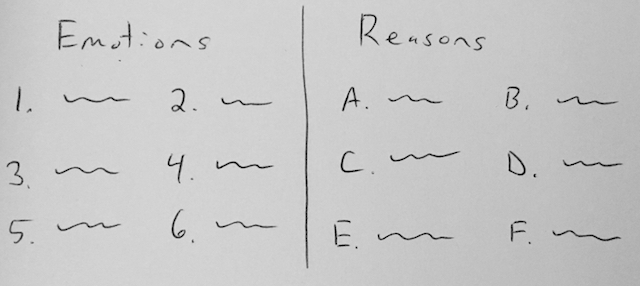 Emotions
Reasons
1. 2.
3. 4.
5. 6.
A. B.
C. D.
E. F.